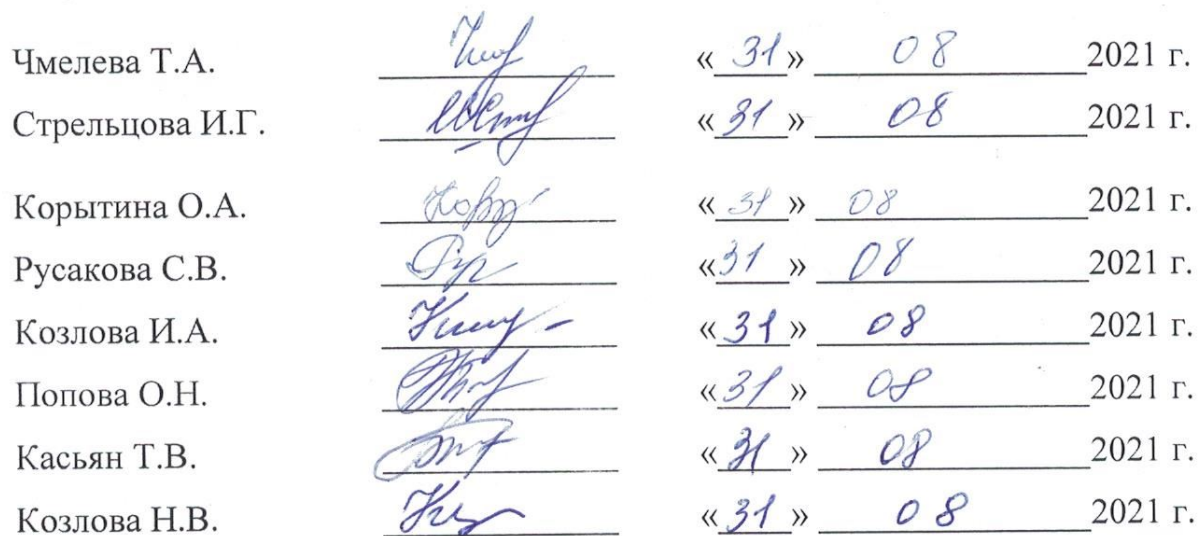 Чмелева Т.А. « 31 » 08 2021 г.
Стрельцова И.Г. « 31 » 08 2021 г.
Корытина О.А. « 31 » 08 2021 г.
Русакова С.В. «31 » 08 2021 г.
Козлова И.А. «31» 08 2021 г.
Попова О.Н. «31» 08 2021 г.
Касьян Т.В. «31 » 08 2021 г.
Козлова Н.В. «31 » 08 2021 г.